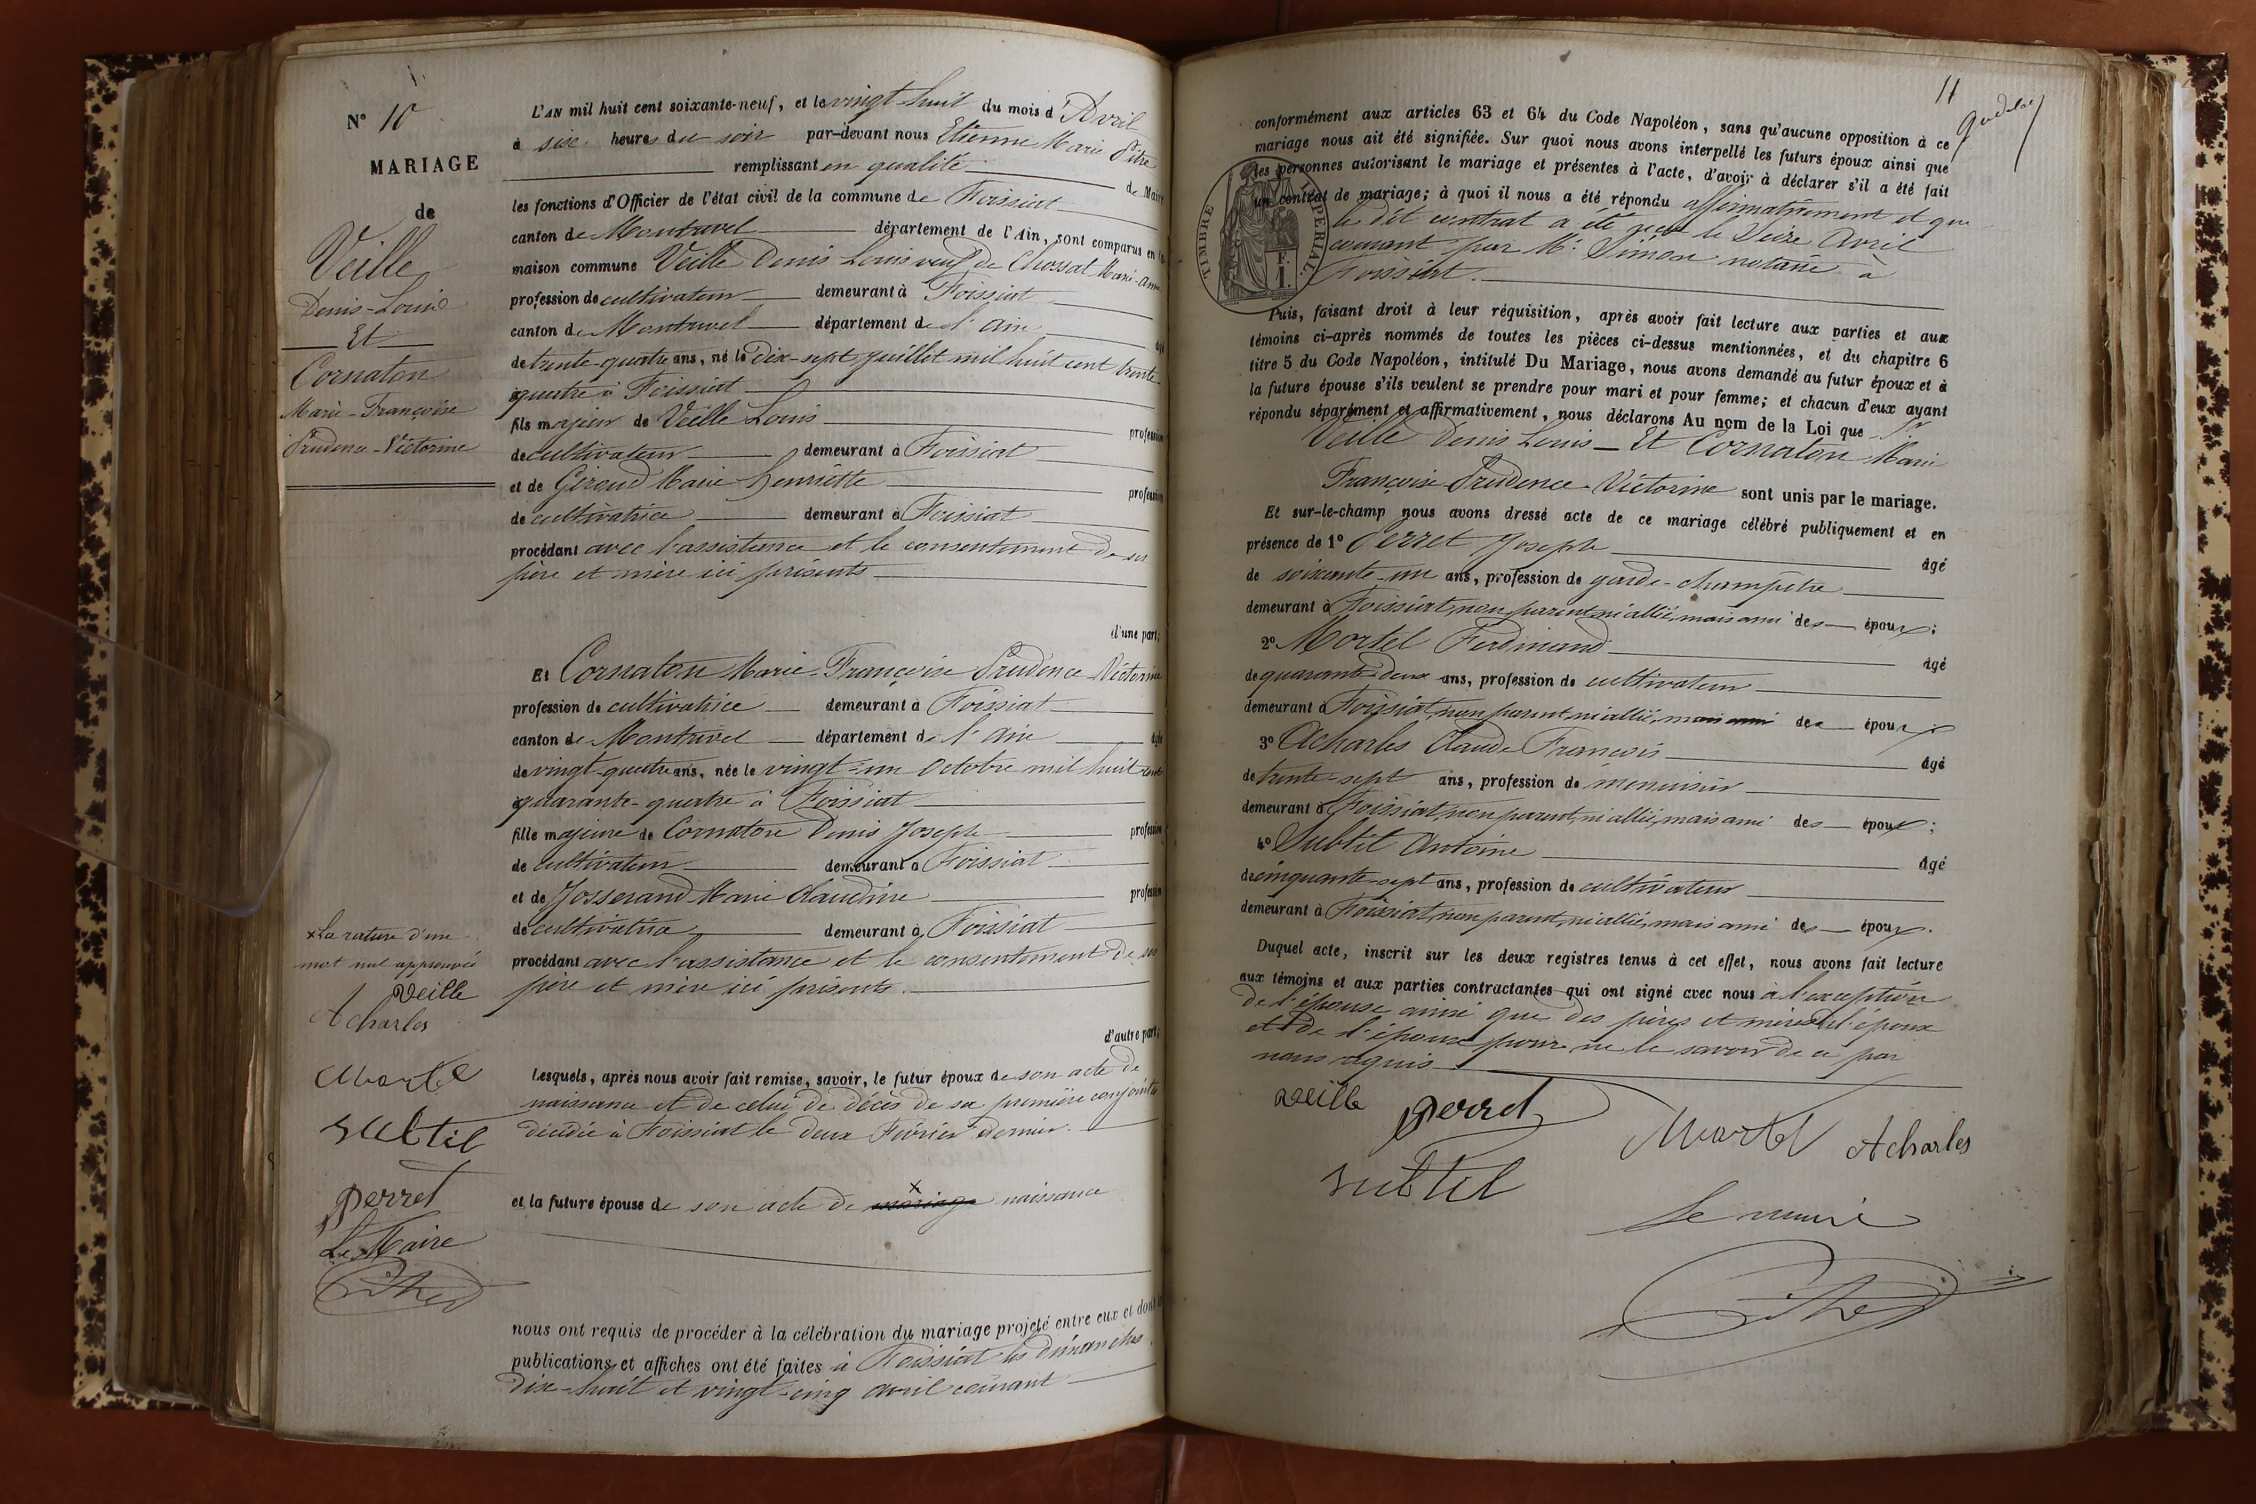 N° 10
MARIAGE
de
Veille
Denis-Louis
Et
Cornaton
Marie-Françoise
Prudence-Victorine
L'AN mil huit cent soixante-neuf, et le vingt-huit du mois d'Avril
à six heures du soir par-devant nous Etienne Marie Pitre
remplissant en qualité de Maire
les fonctions d'Officier de l'état civil de la commune de Foissiat
canton de Montrevel département de l'Ain, sont comparus en la
maison commune Veille Denis Louis veuf de Chossat Marie-Anne
profession de cultivateur demeurant à Foissiat
canton de Montrevel département de l'ain âgé
de trente-quatre ans, né le Dix-sept Juillet mil huit cent trente
quatre à Foissiat
fils majeur de Veille Louis profession
de cultivateur demeurant à Foissiat
et de Giroud Marie Henriette profession
de cultivatrice demeurant à Foissiat
procédant avec l'assistance et le consentement de ses
père et mère ici présents
d'une part;
Et Cornaton Marie-Françoise Prudence-Victorine
profession de cultivatrice demeurant à Foissiat
canton de Montrevel département de l'ain âgée
de vingt-quatre ans, née le vingt-un Octobre mil huit cent
quarante-quatre à Foissiat
fille majeure de Cornaton Denis Joseph profession
de cultivateur demeurant à Foissiat
et de Josserand Marie Claudine profession
de cultivatrice demeurant à Foissiat
procédant avec l'assistance et le consentement de ses
père et mère ici présents
d'autre part;
Lesquels, après nous avoir fait remise, savoir, le futur époux de son acte de
naissance et de celui de décès de sa première conjointe
décédée à Foissiat le deux Février dernier.
et la future épouse de son acte de mariage x naissance
nous ont requis de procéder à la célébration du mariage projeté entre eux et dont les
publications et affiches ont été faites à Foissiat les dimanches
Dix-huit et vingt-cinq avril courant
x La rature d'un
mot nul approuvée
Veille
Acharles
Mortel
Subtil
perret
Le Maire
Pitre
11
conformément aux articles 63 et 64 du Code Napoléon, sans qu'aucune opposition à ce
mariage nous ait été signifiée. Sur quoi nous avons interpellé les futurs époux ainsi que
les personnes autorisant le mariage et présentes à l'acte, d'avoir à déclarer s'il a été fait
un contrat de mariage; à quoi il nous a été répondu affirmativement et que
le dit contrat a été reçu le Seize Avril
courant par Me Simon notaire à
Foissiat.
TIMBRE IMPÉRIAL
F.
1.
Puis, faisant droit à leur réquisition, après avoir fait lecture aux parties et aux
témoins ci-après nommés de toutes les pièces ci-dessus mentionnées, et du chapitre 6
titre 5 du Code Napoléon, intitulé Du Mariage, nous avons demandé au futur époux et à
la future épouse s'ils veulent se prendre pour mari et pour femme; et chacun d'eux ayant
répondu séparément et affirmativement, nous déclarons Au nom de la Loi que Sr
Veille Denis Louis - Et Cornaton Marie
Françoise Prudence-Victorine sont unis par le mariage.
Et sur-le-champ nous avons dressé acte de ce mariage célébré publiquement et en
présence de 1° Perret Joseph âgé
de soixante-un ans, profession de garde-champêtre
demeurant à Foissiat, non parent, ni allié, mais ami des époux;
2° Mortel Ferdinand âgé
de quarante-deux ans, profession de cultivateur
demeurant à Foissiat, non parent, ni allié, mais ami des époux;
3° Acharles Claude François âgé
de trente-sept ans, profession de menuisier
demeurant à Foissiat, non parent, ni allié, mais ami des époux;
4° Subtil Antoine âgé
de cinquante-sept ans, profession de cultivateur
demeurant à Foissiat, non parent, ni allié, mais ami des époux.
Duquel acte, inscrit sur les deux registres tenus à cet effet, nous avons fait lecture
aux témoins et aux parties contractantes qui ont signé avec nous à l'exception
de l'épouse ainsi que des pères et mères de l'époux
et de l'épouse pour ne le savoir de ce par
nous requis
Veille perret Mortel Acharles
Subtil
Le maire
Pitre